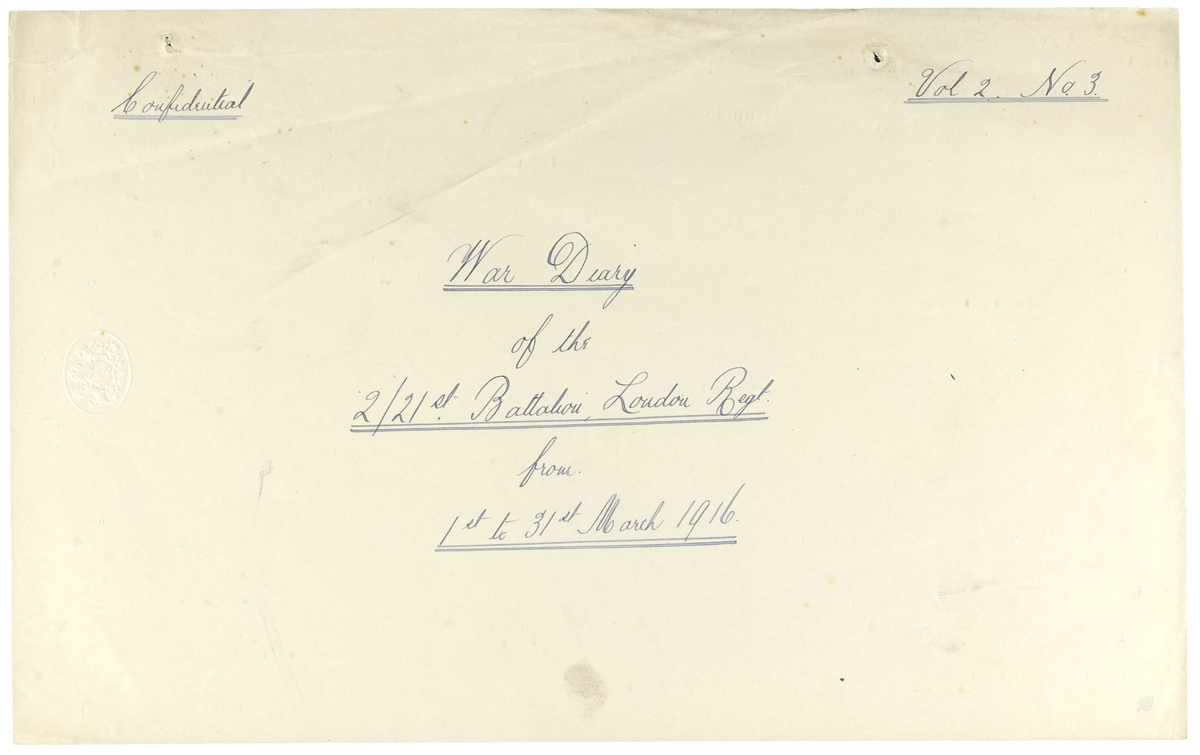 Confidential
Vol 2. No 3.
War Diary
of the
2/21st. Battalion, London Regt.
from.
1st to 31st March 1916.